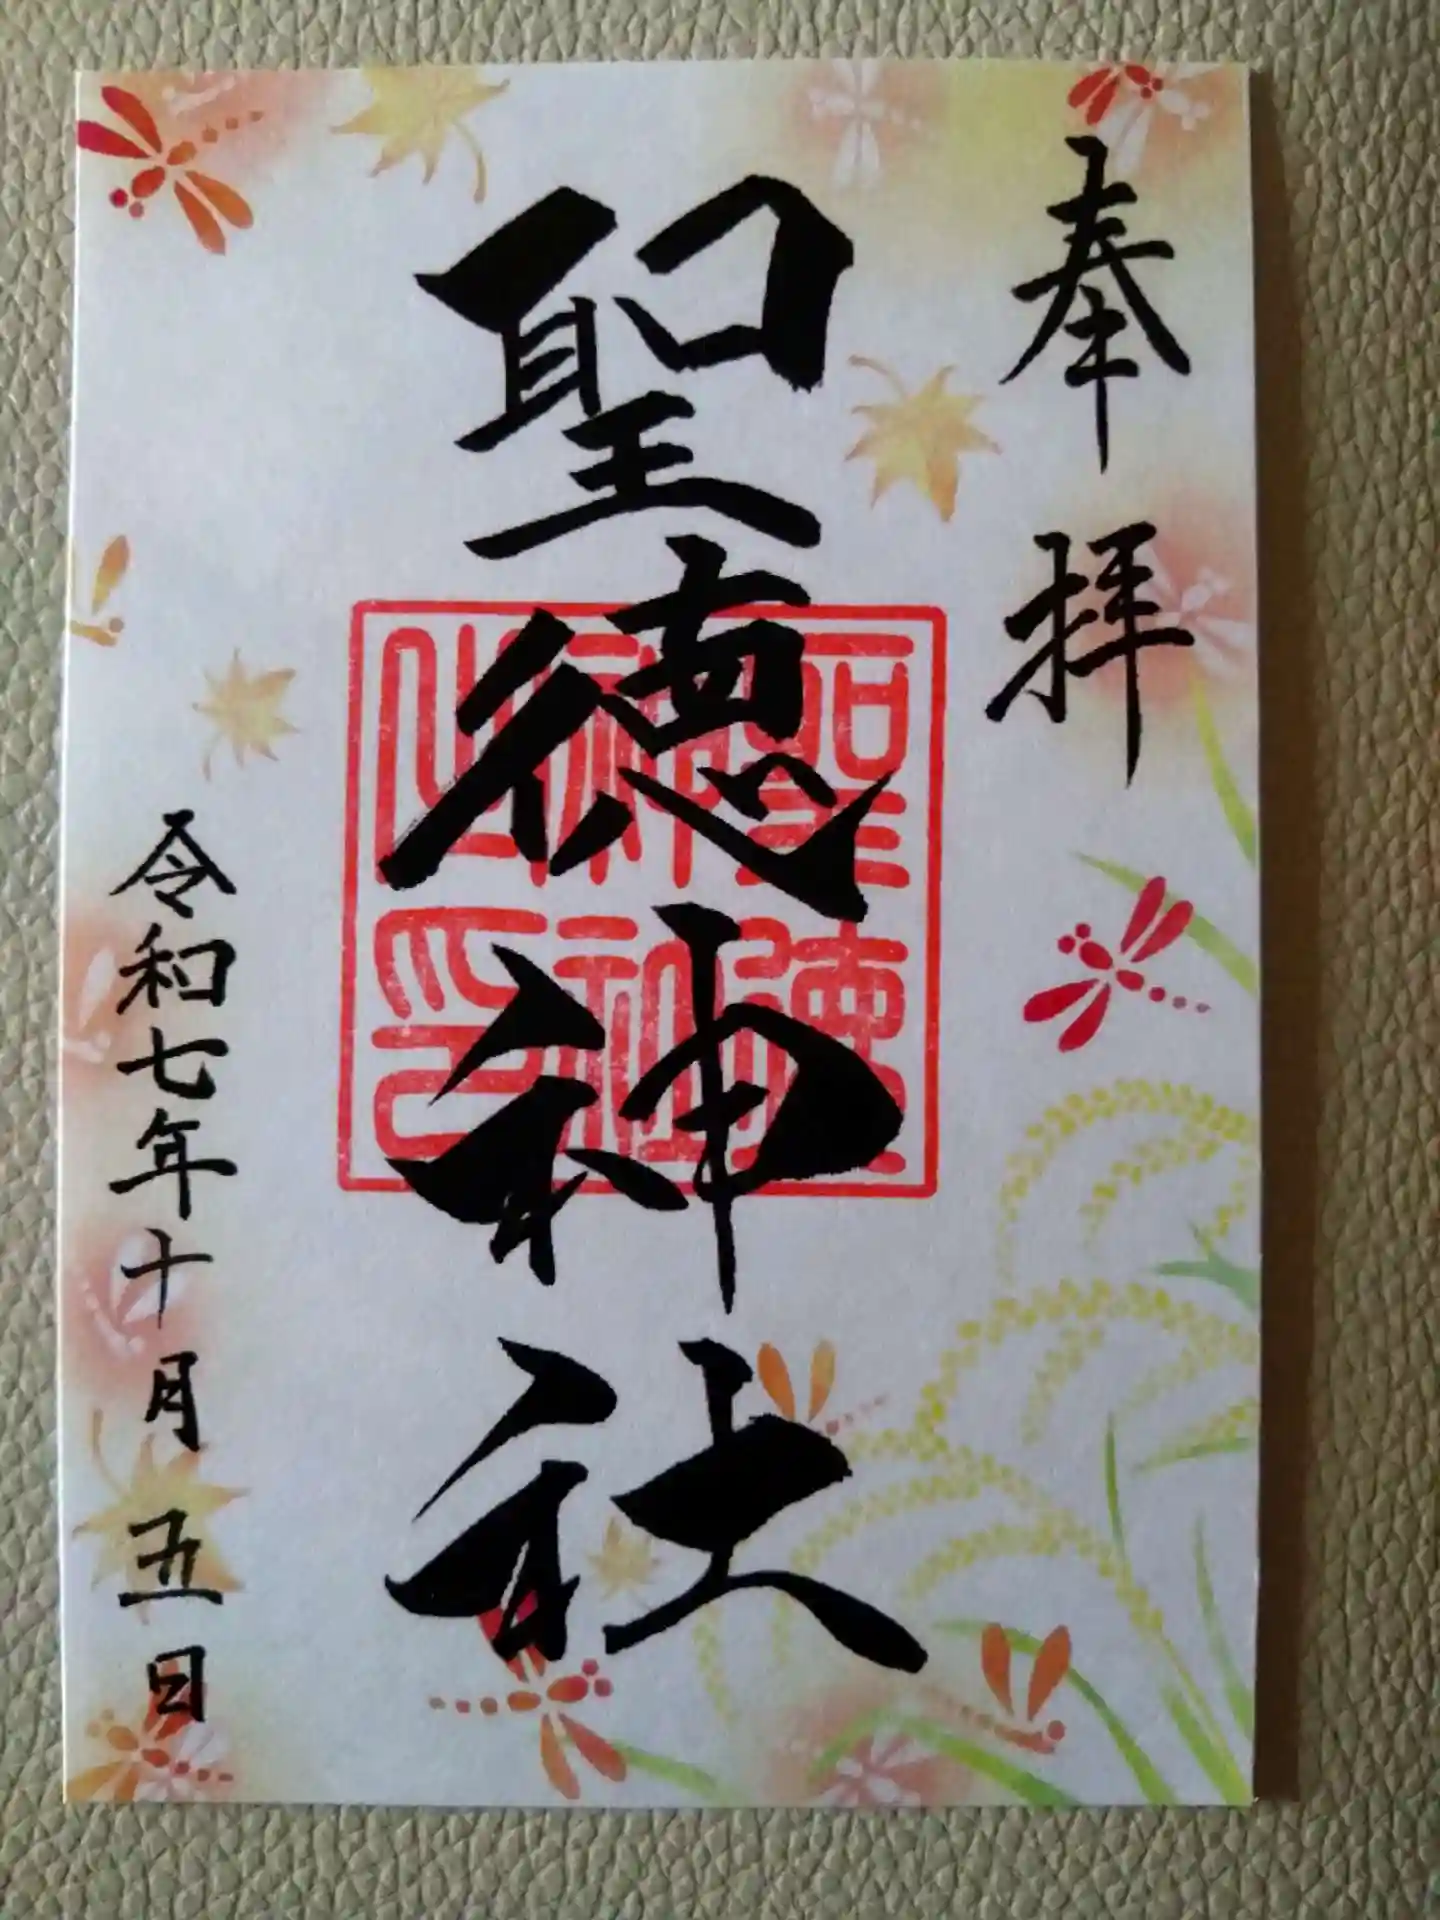 奉拝
聖徳神社
聖徳
神社
之印
令和七年十月五日